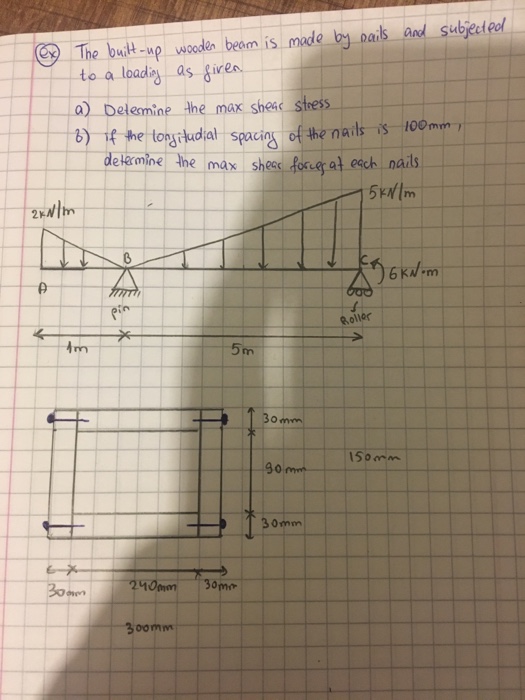 ex The built-up wooden beam is made by nails and subjected
to a loading as given.
a) Determine the max shear stress
b) if the longitudial spacing of the nails is 100mm,
determine the max shear forces at each nails
5kN/m
2kN/m
B
C
6kN.m
A
pin
Roller
1m
5m
30mm
90mm
150mm
30mm
30mm
240mm
30mm
300mm